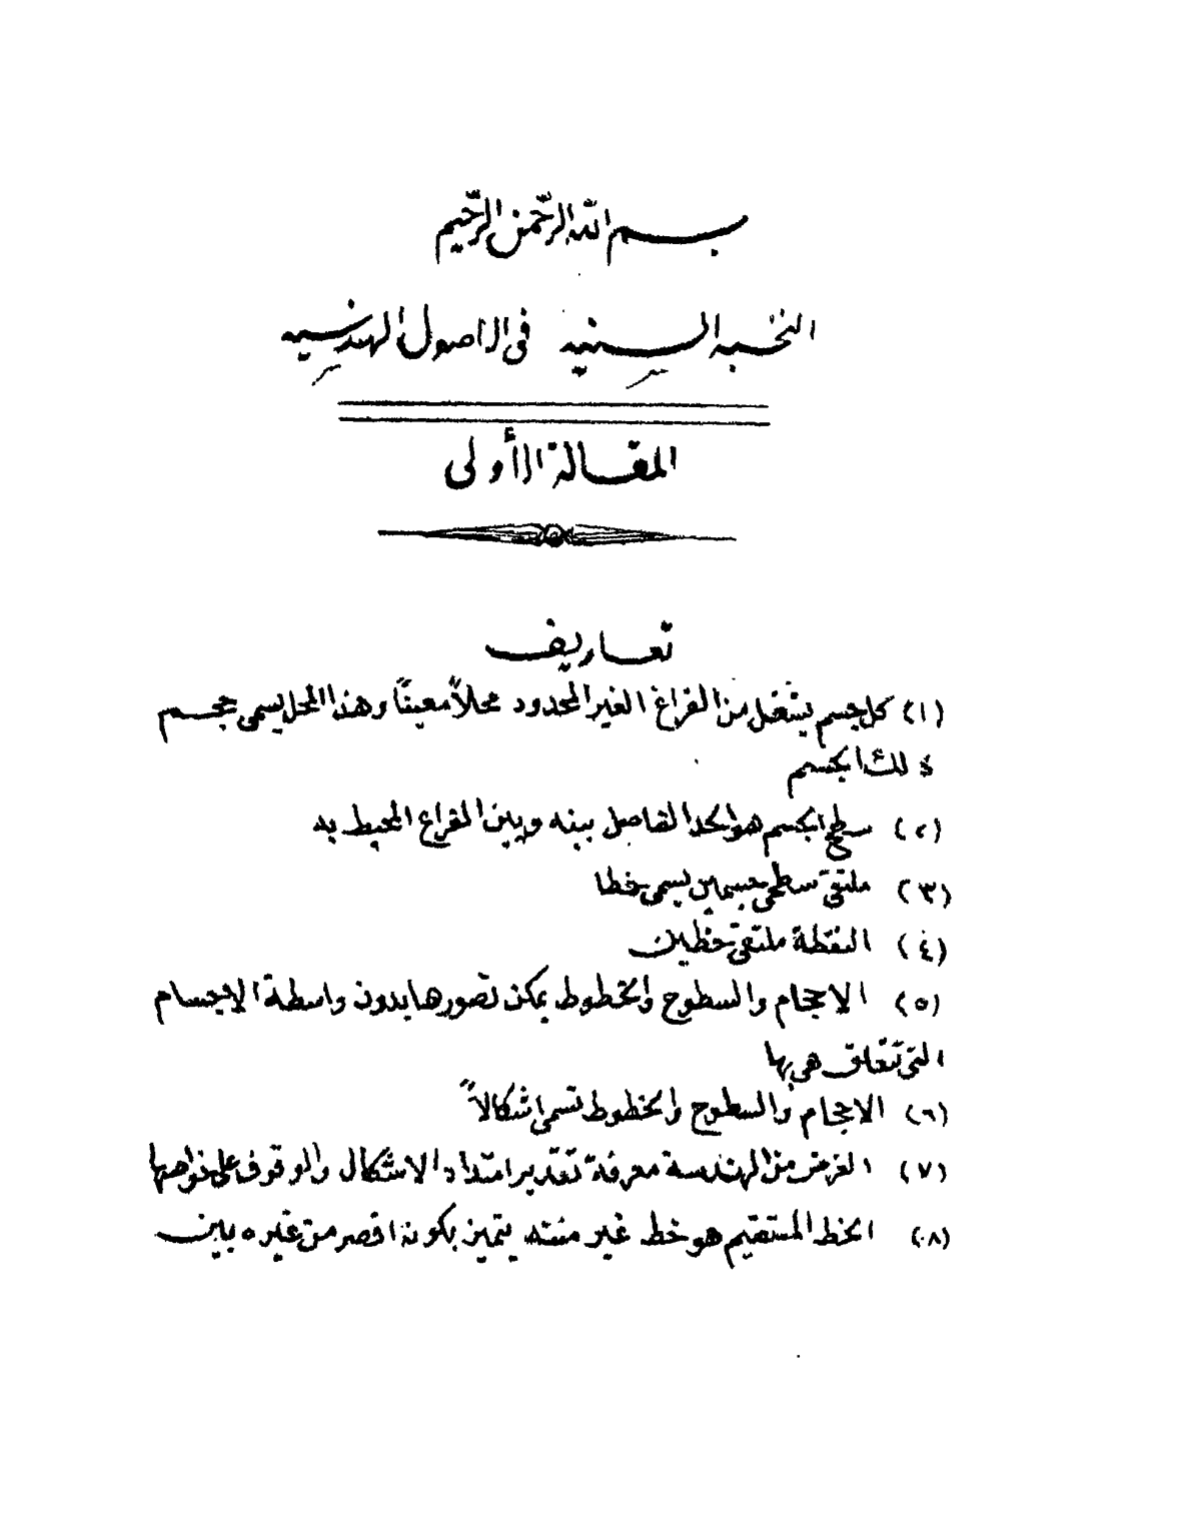 بسم الله الرحمن الرحيم
النخبه السنيه في الاصول الهندسيه
المقالة الأولى
تعاريف
(١) كل جسم يشغل من الفراغ الغير المحدود محلاً معيناً وهذا المحل يسمى حجم
ذلك الجسم
(٢) سطح الجسم هو الحد الفاصل بينه وبين الفراغ المحيط به
(٣) ملتقى سطحى جسمين يسمى خطا
(٤) النقطة ملتقى خطين
(٥) الاحجام والسطوح والخطوط يمكن تصورها بدون واسطة الاجسام
التى تتعلق هى بها
(٦) الاحجام والسطوح والخطوط تسمى اشكالاً
(٧) الغرض من الهندسة معرفة تقدير امتداد الاشكال والوقوف على خواصها
(٨) الخط المستقيم هو خط غير منته يتميز بكونه اقصر من غيره بين